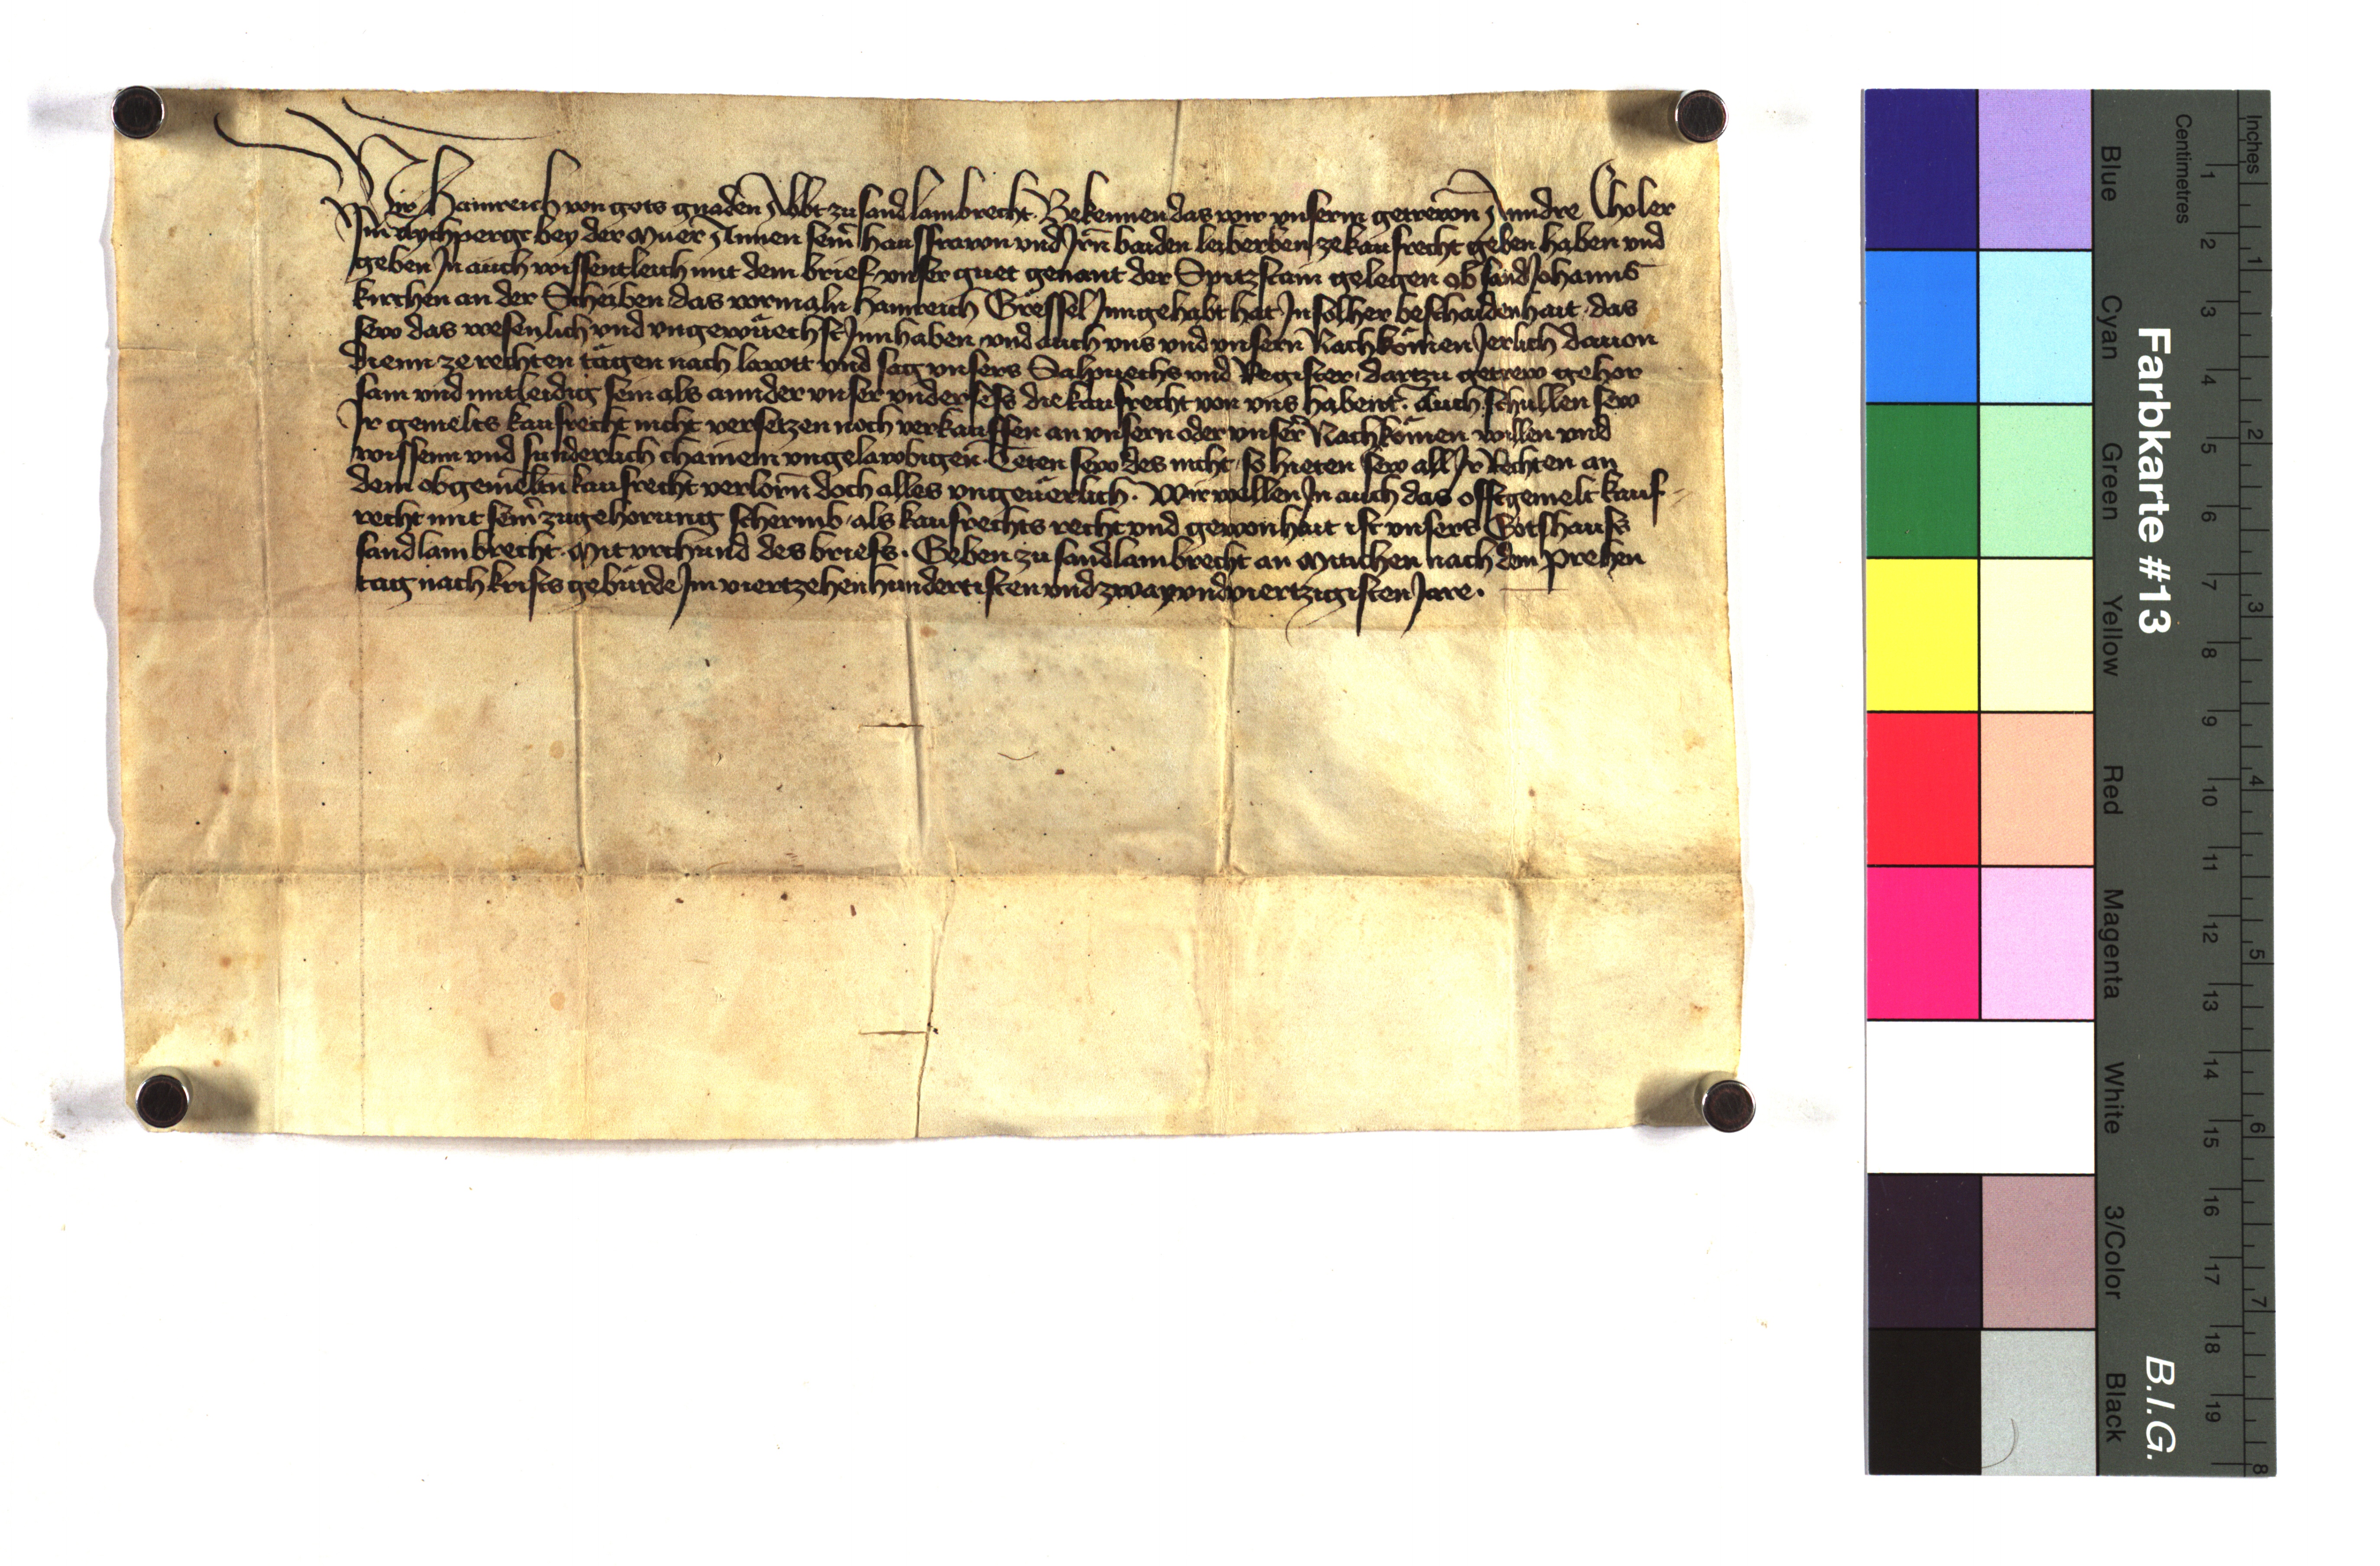 Wir Hainreich von gots gnaden Abbt zu sand lambrecht. Bekennen das wir vnserm getrewn Anndre Choler
Im aychperge bey der Muer Annen seiñ hausfrawn vnd Irñ baiden leiberben ze kaufrecht geben haben vnd
geben In auch wissentleich mit dem brief vnser guet genant der Spitzstain gelegen ob sand Johanns
kirchen an der Scheiben das vormaln Hainreich Grëssel Inngehabt hat In solher beschaidenhait das
sew das wesenlich vnd vngewüechst Innhaben vnd auch vns vnd vnsern Nachkömen Jerlich dauon
dienn ze rechten tägen nach lawtt vnd sag vnsers Salpuechs vnd Register, dartzu getrew gehor
sam vnd mitleidig sein als annder vnser vndersess die kaufrecht von vns habent. Auch schullen sew
Ir gemelts kaufrecht nicht versetzen noch verkauffen an vnsern oder vnser Nachkömen willen vnd
wissenn vnd sunderlich chainem vngelawbigen. Teten sew des nicht so hieten sew all Ir Rechten an
dem obgemeltn kaufrecht verlorn doch alles vngeuerlich. Wir wellen In auch das offtgemelt kauf-
recht mit seiñ zugehorung schermb als kaufrechts recht vnd gewonhait ist vnsers Gotshauss
sand lambrecht. Mit vrchund des briefs. Geben zu sand lambrecht an Mitichen nach dem Prehen
tag nach krists gebürde Im viertzehenhundertisten vnd zway vnd viertzigisten Jare.
Farbkarte #13
B.I.G.
Blue Cyan Green Yellow Red Magenta White 3/Color Black
Centimetres
1 2 3 4 5 6 7 8 9 10 11 12 13 14 15 16 17 18 19
Inches
1 2 3 4 5 6 7 8